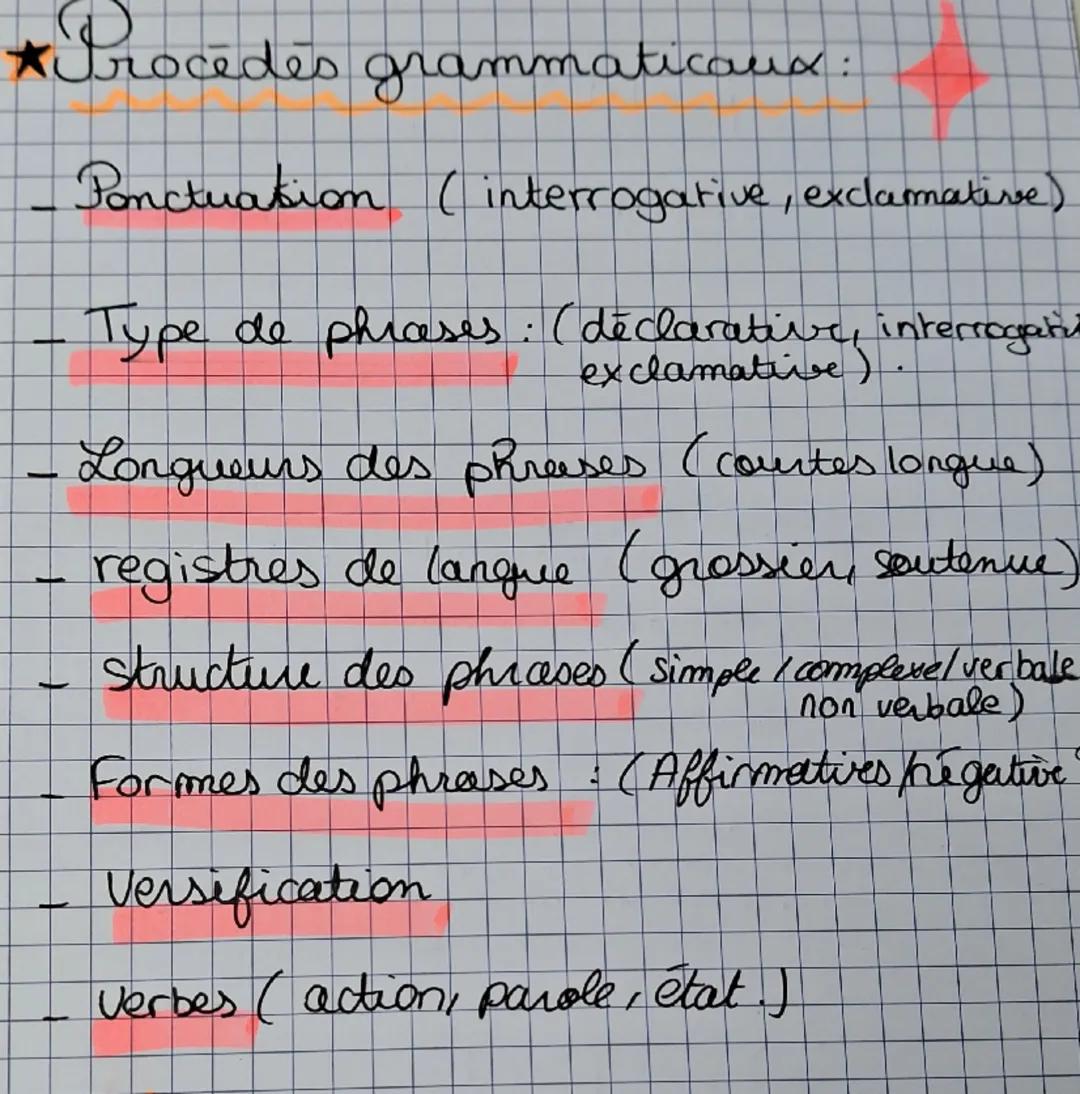 Procédés grammaticaux :
- Ponctuation (interrogative, exclamative)
- Type de phrases : (déclarative, interrogativ
exclamative).
- Longueurs des phrases (courtes longue)
- registres de langue (grossier, soutenue)
- structure des phrases (simple / complexe / verbale
non verbale)
- Formes des phrases : (Affirmatives / négative
- Versification
- verbes (action, parole, état.)